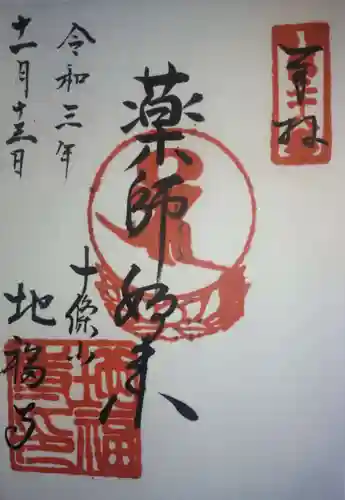 奉拝
薬師如来
十條山
地福寺
令和三年
十一月十三日